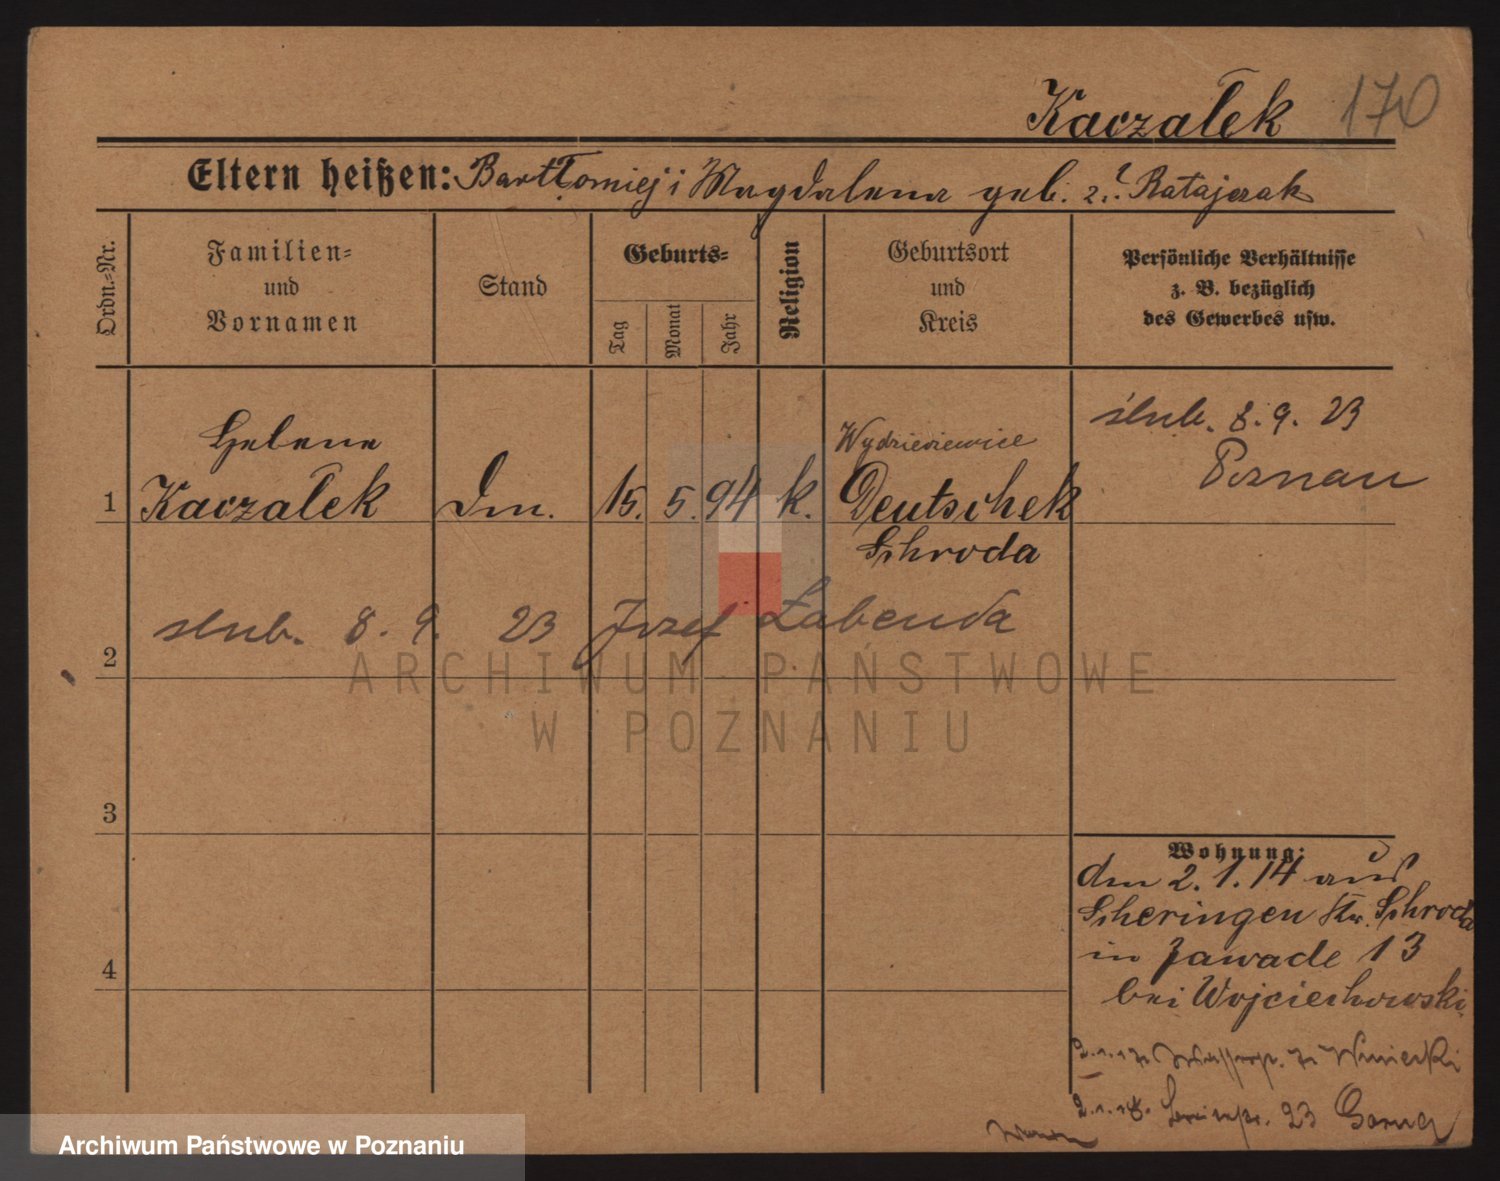 Kaczałek 170
Eltern heißen: Bartłomiej i Magdalena geb. z d. Ratajczak
Ordn.-Nr.
Familien-
und
Vornamen
Stand
Geburts-
Tag
Monat
Jahr
Religion
Geburtsort
und
Kreis
Persönliche Verhältnisse
z. B. bezüglich
des Gewerbes usw.
ślub. 8. 9. 23
Poznau
Helene
1 Kaczałek Dm. 15. 5. 94 k. Deutschek
Schroda
ślub. 8. 9. 23 Jozef Łabenda
2
3
4
Wohnung:
den 2. 1. 14 aus
Scheringen Kr. Schroda
in Zawade 13
bei Wojciechowski
2.1.18. 23 Gorna
ARCHIWUM PAŃSTWOWE
W POZNANIU
Archiwum Państwowe w Poznaniu